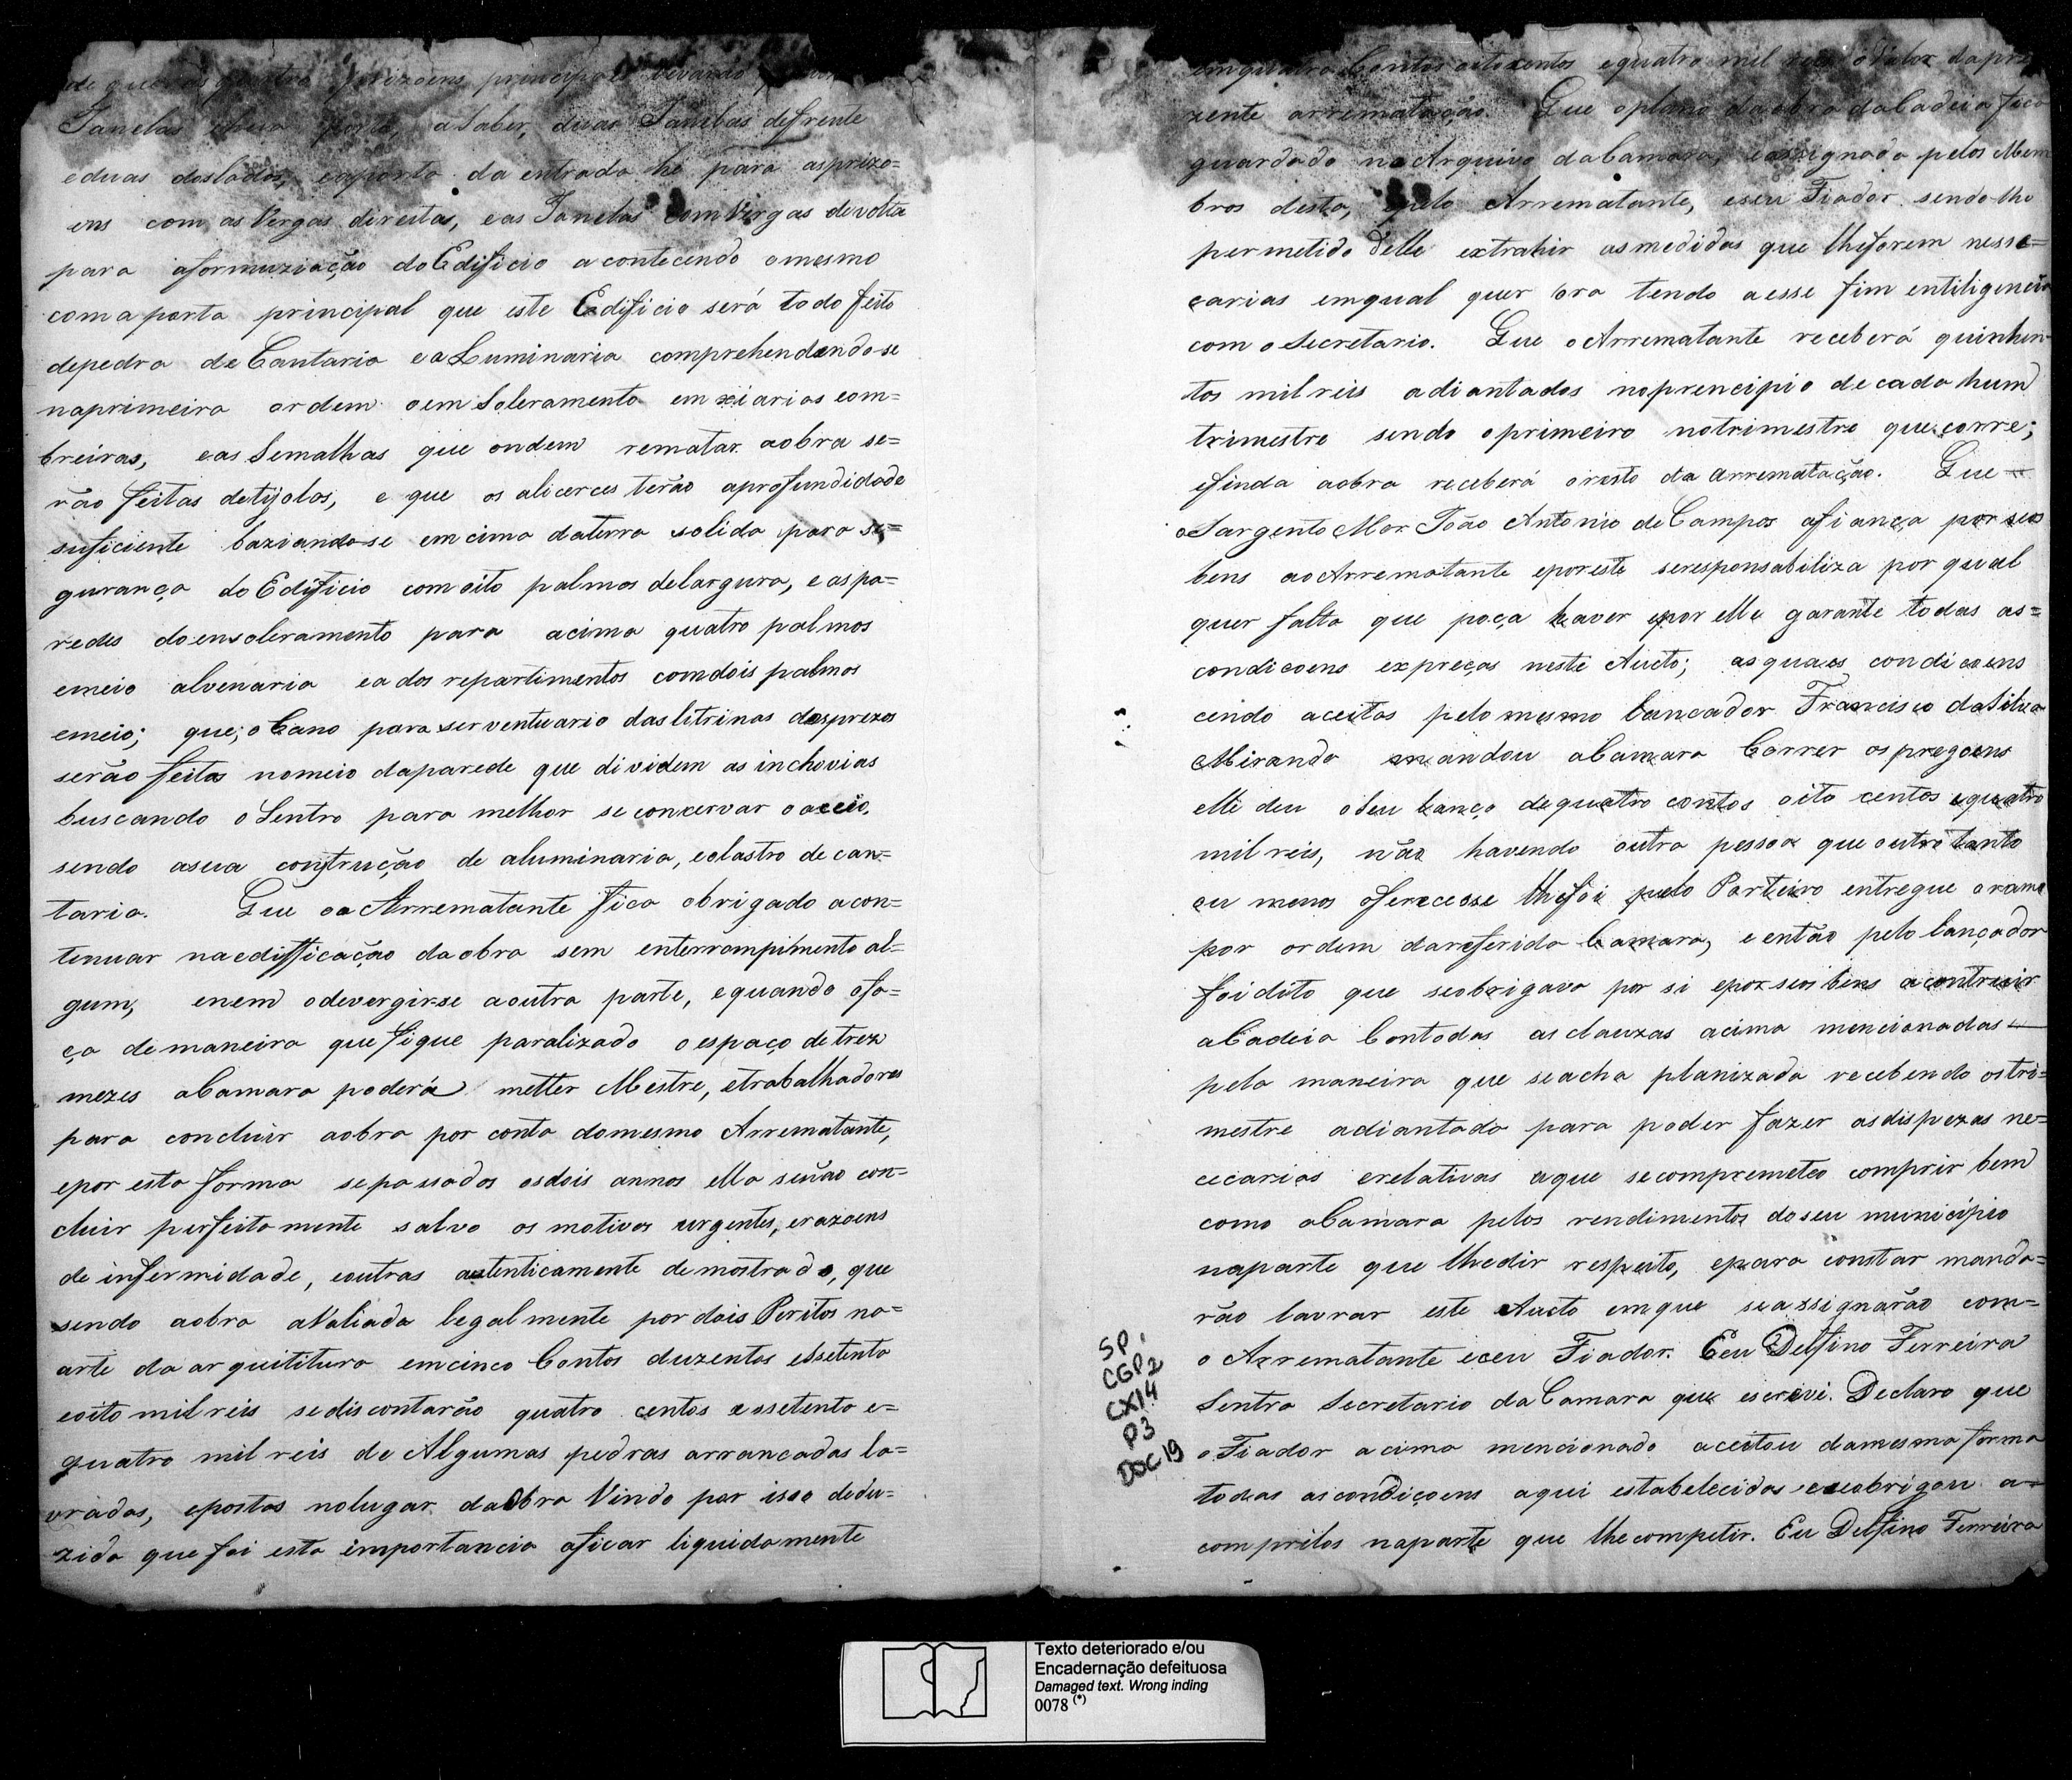 prizoens principaes levarão
Janelas huma porta, a Saber, duas Janelas defrente
eduas doslados, eaporta da entrada he para asprizo=
ens com as Vergas direitas, eas Janelas com Virgas devolta
para aformuziação doEdificio acontecendo omesmo
comaporta principal que este Edificio será todo feito
depedra de Cantaria ea Luminaria comprehendendo-se
naprimeira ordem oem Soleramento enxiarias com=
breiras, eas Semalhas que ondem rematar aobra se=
rão feitas detijolos, e que os alicerces terão aprofundidade
suficiente baziandose emcima daterra solida para se=
gurança doEdificio com oito palmos delargura, e aspa=
redes doensoleramento para acima quatro palmos
emeio alvenaria eados repartimentos comdois palmos
emeio; que; oCano para serventuario daslitrinas dosprezos
serão feitos nomeio daparede que dividem as inchovias
buscando oSentro para melhor se concervar oaceio,
sendo asua contrução de aluminaria, eolastro decan=
taria. Que oa Arrematante fica obrigado acon=
tenuar naedifficação daobra sem enterrompimento al=
gum, enem odevergirse aoutra parte, equando ofa=
ça demaneira quefique paralizado oespaço detrez
mezes aCamara poderá metter Mestre, etrabalhadores
para concluir aobra por conta domesmo Arrematante,
epor esta forma sepassados osdois annos ella senão con=
cluir perfeitamente salvo os motivos urgentes, erazoens
de infermidade, eoutras autenticamente demostrado, que
sendo aobra aValiada legalmente por dois Peritos na=
arte da arquititura emcinco Contos duzentos essetenta
eoito mil réis sediscontarão quatro centos essetenta e=
quatro mil reis de Algumas pedras arrancadas la=
vradas, epostas nolugar daObra Vindo por isso dedu=
zido que foi esta importancia aficar liquidamente
emquatro Contos oitocentos equatro mil reis oValor dapre
zente arrematação. Que oplano daobra daCadeia fica
guardado noArquivo daCamara, eassignado pelos Mem
bros desta, epelo Arrematante, eseu Fiador sendo-lhe
permetido delle extrahir asmedidas que lheforem nesse=
çarias emqual quer ora tendo aesse fim entiligencia
com oSecretario. Que oArrematante receberá quinhen=
tos mil reis adiantados noprencipio decada hum
trimestre sendo oprimeiro notrimestre que corre;
efinda aobra receberá oresto da arrematação. Que
oSargento Mor João Antonio deCampos afiança por seos
bens aoArrematante eporeste seresponsabiliza porqual
quer falta que poça haver epor elle garante todas as=
condicoens expreças neste Aucto; asquaes condicoens
cendo aceitas pelo mesmo Lancador Francisco daSilva
Miranda mandou aCamara Correr ospregoens
elle deu oSeu Lanço dequatro contos oito centos equatro
milreis, não havendo outra pessoa que outro tanto
ou menos oferecesse lhefoi pelo Porteiro entregue oramo
por ordem dareferida Camara, eentão pelo lançador
foidito que seobrigava por si epor seos bens acontruir
aCadeia Contodas as clauzas acima mencionadas
pela maneira que seacha planizada recebendo ostri=
mestre adiantado para poder fazer asdispezas ne=
cecarias erelativas aque secompremeteo comprir bem
como aCamara pelos rendimentos doseu municipio
naparte que lhedir respeito, epara constar manda=
rão lavrar este Aucto emque seassignarão com=
o Arrematante eceu Fiador. Eeu Delfino Ferreira
Sentra Secretario daCamara que escrevi. Declaro que
oFiador acima mencionado aceitou damesma forma
todas ascondiçoens aqui estabelecidas eseobrigou a=
comprilos naparte que lhecompetir. Eu Delfino Ferreira
SP.
CGP2
CX14
P3
DOC 19
Texto deteriorado e/ou
Encadernação defeituosa
Damaged text. Wrong inding
0078 (*)